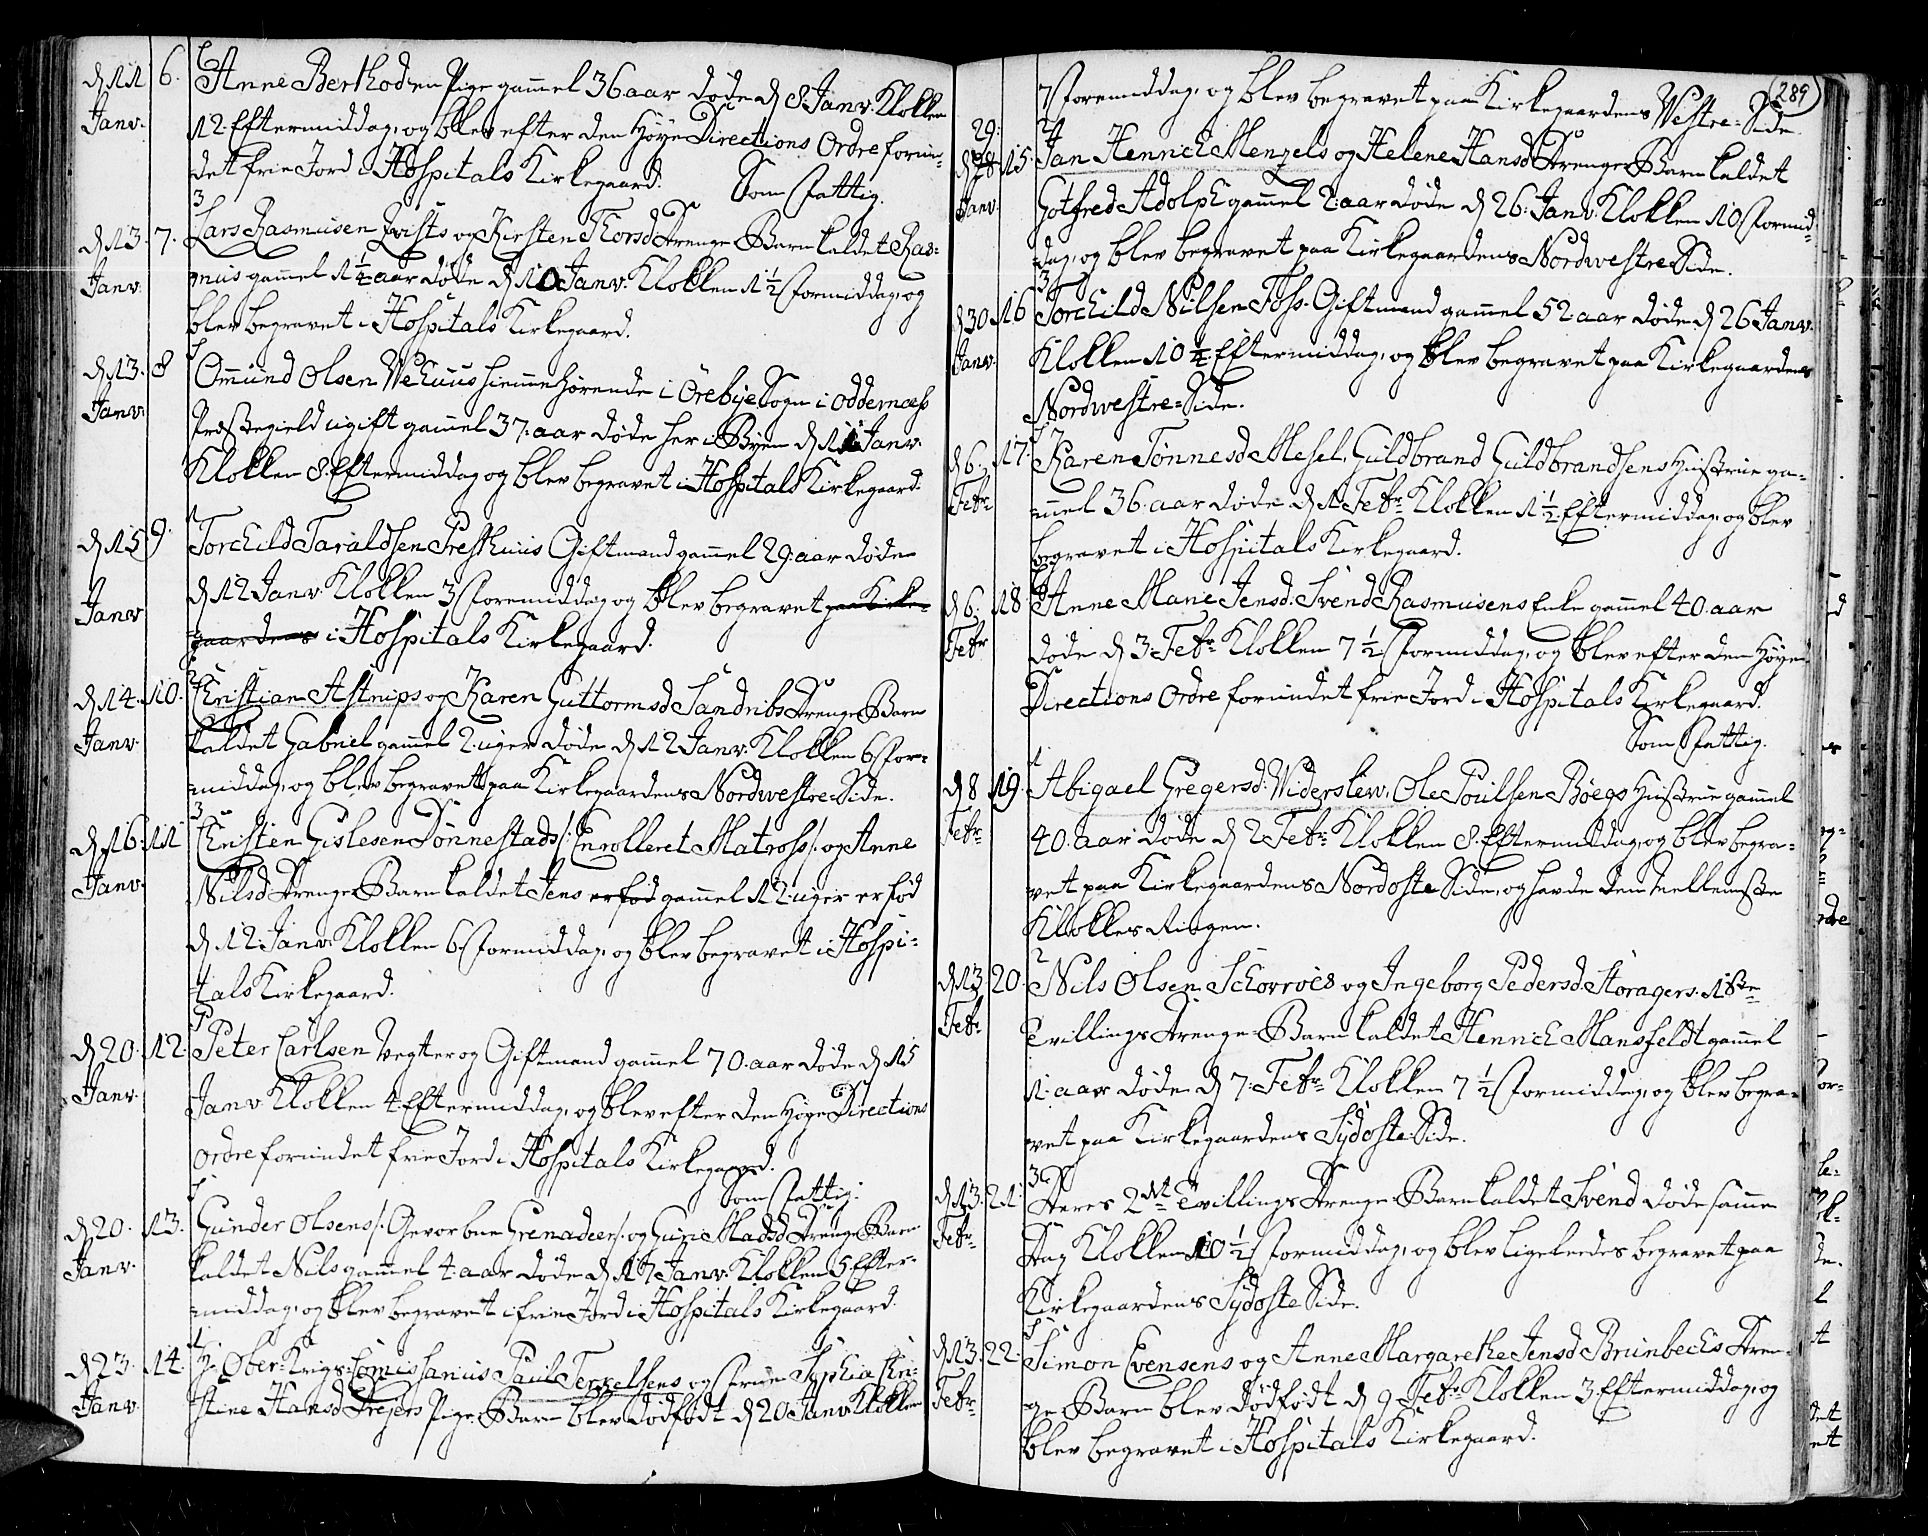 d 11 6. Anne Berthod en Pige gam̄el 36 aar døde d 8 Janv. Klokken
Janv. 12 Eftermiddag, og blev efter den Høye Directions Ordre forun-
det frie Jord i Hospitals Kirkegaard. Som Fattig.
3
d 13. 7. Lars Rasmusen Qvists og Kirsten Thorsd Drenge Barn kaldet Ras-
Janv. mus gam̄el 1¼ aar døde d 10 Janv. Klokken 1½ Formiddag, og
blev begravet i Hospitals Kirkegaard.
d 13. 8 Om̄und Olsen Wehuus hiemmehørende i Örebye Sogn i Oddernæss
Janv. Præstegield ugift gam̄el 37. aar døde her i Byen d 11 Janv.
Klokken 8. Eftermiddag og blev begravet i Hospitals Kirkegaard.
1
d 15 9. Torchild Taraldsen Presthuus Giftmand gam̄el 29. aar døde
Janv d 12 Janv. Klokken 3 Foremiddag og blev begravet paa Kirke-
gaardens i Hospitals Kirkegaard.
2
d 14. 10. Christian Astrups og Karen Guttormsd Sandribs Drenge Barn
Janv. kaldet Gabriel gam̄el 2. uger døde d 12 Janv. Klokken 6 For-
middag, og blev begravet paa Kirkegaardens Nordwestre Side.
3
d 16. 11 Christen Gislesen Dønnestads /: Enrolleret Matross :/ og Anne
Janv. Nilsd Drenge Barn kaldet Jens er fød gam̄el 12. uger er fød
d 12 Janv. Klokken 6 Formiddag, og blev begravet i Hospi-
tals Kirkegaard.
d 20. 12. Peter Carlsen Vegter og Giftmand gam̄el 70. aar døde d 15
Janv. Janv Klokken 4 Eftermiddag, og blev efter den Høye Directions
Ordre forundet frie Jord i Hospitals Kirkegaard.
Som Fattig.
d 20. 13. Gunder Olsens /: Gevorben Grenadeer :/ og Guri Madsd Drenge Barn
Janv. kaldet Nils gam̄el 4. aar døde d 17 Janv. Klokken 5 Efter-
middag, og blev begravet i frie Jord i Hospitals Kirkegaard.
1
d 23. 14. Hr Ober-Krigs-Com̄issarius Paul Terkelsens og Frue Sophia Chri-
Janv. stine Hansd Dreyers Pige Barn blev dødfødt d 20 Janv Klokken
289
7 Foremiddag, og blev begravet paa Kirkegaardens Westre-Side
2
29. d 28 15. Jan Henrich Menzels og Helene Hansd Drenge Barn kaldet
Janv. Gotfred Adolph gam̄el 2. aar døde d 26. Janv. Klokken 10 Formid-
dag, og blev begravet paa Kirkegaardens Nordwestre Side.
3
d 30 16 Torchild Nilsen Foss. Giftmand gam̄el 52. aar døde d 26 Janv.
Janv. Klokken 10¼ Eftermiddag, og blev begravet paa Kirkegaardens
Nordwestre-Side.
d 6. 17. Karen Tønnesd Mesel, Guldbrand Guldbrandsens Hustrue ga-
Febr. m̄el 36. aar døde d 1 Febr. Klokken 1½ Eftermiddag, og blev
begravet i Hospitals Kirkegaard.
d 6. 18 Anne Marie Jensd. Svend Rasmusens Enke gam̄el 40. aar
Febr døde d 3. Febr. Klokken 7½ Formiddag, og blev efter den Høye
Directions Ordre forundet frie Jord i Hospitals Kirkegaard.
Som Fattig.
1
d 8 19. Abigael Gregersd. Widerslew, Ole Poulsen Bøegs Hustrue gam̄el
Febr 40. aar døde d 2 Febr. Klokken 8. Eftermiddag, og blev begra-
vet paa Kirkegaardens Nordoste Side, og havde den Mellemste
Klokkes Ringen.
2
d 13 20. Nils Olsen Schovroes og Ingeborg Pedersd Storagers. 1ste
Febr. Tvillings Drenge-Barn kaldet Henrich Mansfeldt gam̄el
1. aar døde d 7. Febr. Klokken 7½ Formiddag, og blev begra-
vet paa Kirkegaardens Sydoste Side.
3
d 13. 21. Deres 2det Tvillings Drenge-Barn kaldet Svend døde sam̄e
Febr. Dag Klokken 10½ Formiddag, og blev ligeledes begravet paa
Kirkegaardens Sydoste Side.
d 13. 22. Simon Evensens og Anne Margarethe Jensd Brunbecks Dren-
Febr. ge Barn blev dødfødt d 9 Febr. Klokken 3. Eftermiddag, og
blev begravet i Hospitals Kirkegaard.